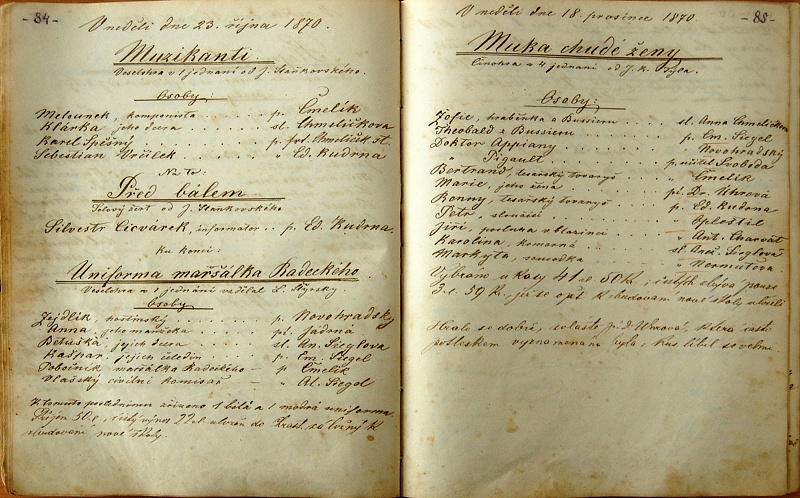 - 84 -
V neděli dne 23. října 1870.
Muzikanti.
Veselohra v 1 jednání od J. Staňkovského.
Osoby:
Melounek, komponista . . . . . p. Čmelík
Klárka jeho dcera . . . . . sl. Chmelíčkova
Karel Spěšný . . . . . p. Chmelíček st.
Sebestian Vrčílek . . . . . " Ed. Kudrna
Na to:
Před bálem
Solový žert od J. Stankovského
Silvestr Cicvárek, informator . . p. Ed. Kudrna.
Ku konci:
Uniforma maršálka Radeckého.
Veselohra v 1 jednání vzdělal L. Stýrsky
Osoby
Zejdlík, hostinský p. Novohradsky
Anna, jeho manželka pí. Jadrná
Betuška, jejich dcera sl. An. Sieglova
Kašpar, jejich čeledín p. Em. Siegel
Pobočník maršálka Radeckého - p. Čmelík
Vlašský civilní komisař - " Al. Siegel
K tomuto poslednímu zřízeno 1 bílá a 1 modrá uniforma.
Příjem 50 z., čistý výnos 22 z. do
zbudování nové školy.
- 85 -
V neděli dne 18. prosince 1870.
Muka chudé ženy
Činohra v 4 jednání od J. K. Tyla.
Osoby:
Žofie, hraběnka z Bussieru . . . sl. Anna Chmelíčkova
Theobald z Bussieru . . . . p. Em. Siegel
Doktor Appiany . . . . " Novohradský
" Pigault . . . . p. učitel Svoboda
Bertrand, tesařský tovaryš . . " Čmelík
Marie, jeho žena . . . . pí. Dr. Uhrová
Bonny, tesařský tovaryš . . p. Ed. Kudrna
Petr, sloužící . . . . " Opleštil
Jiří, posluha v blázinci . . " Ant. Charvát
Karolina, komorná . . . sl. Ant. Sieglova
Markyta, sousedka . . . "
Vybráno u kasy 41 zl 50 Kr, čistých zbývá pouze
3 z. 59 Kr. jež se opět k zbudování nové školy uložili
Hrálo se dobře, zvláště pí Dr Uhrová, která často
potleskem vyznamenána byla, kus líbil se velmi.